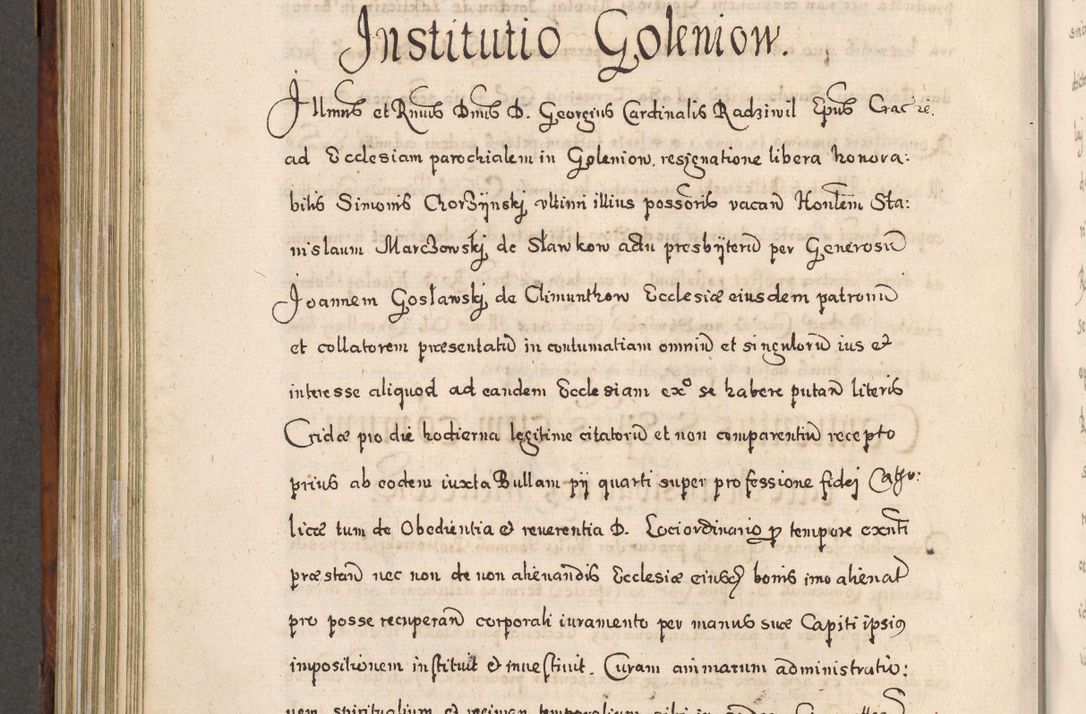 Institutio Goleniow.
Illmus et Rnuus Dmus D. Georgius Cardinalis Radziwil Epus Crac ie.
ad Ecclesiam parochialem in Goleniow, resignatione libera honora:
bilis Simonis Chorzÿnskj vltimi illius possoris vacan Honlem Sta:
nislaum Marczowskj de Slawkow actu presbÿteru per Generosu
Joannem Goslawskj de Climunthow Ecclesiæ eiusdem patronu
et collatorem præsentatu in contumatiam omniu et singuloru ius et
interesse aliquod ad eandem Ecclesiam exº se habere putan literis
Cridæ pro die hodierna legitime citatoru et non comparentiu recepto
prius ab eodem iuxta Bullam pij quarti super professione fidej Catho:
licæ tum de Obedientia et reuerentia D. Lociordinario p tempore exnti
præstan nec non de non alienandis Ecclesiæ eiusq bonis imo alienat
pro posse recuperan corporali iuramento per manus suæ Capiti ipsius
impositionem instituit et inuestiuit. Curam animarum administratio:
nem spiritualium et regimen temporalium sibi in